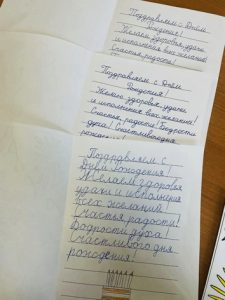 Поздравляем с Днём
Рождения!
Желаем здоровья, удачи
и исполнения всех желаний!
Счастья, радости!
Поздравляем с Днём
Рождения!
Желаю здоровья, удачи
и исполнение всех желаний!
Счастья, радости! Бодрости
духа! Счастливого дня
рождения!
Поздравляем с
Днём рождения!
Желаем здоровья
удачи и исполнения
всех желаний!
Счастья радости!
Бодрости духа!
Счастливого дня
рождения!